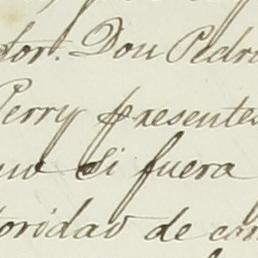 tor. Don Pedr
Perry presentes
si fuera
toridad de con